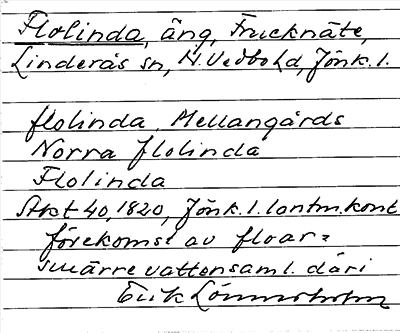 Flolinda, äng, Frucknäte,
Linderås sn, N. Vedbo hd, Jönk. l.
flolinda, Mellangårds
Norra flolinda
Flolinda
Akt 40, 1820, Jönk. l. lantm.kont
förekomst av floar =
smärre vattensaml. däri
Erik Lönnerholm